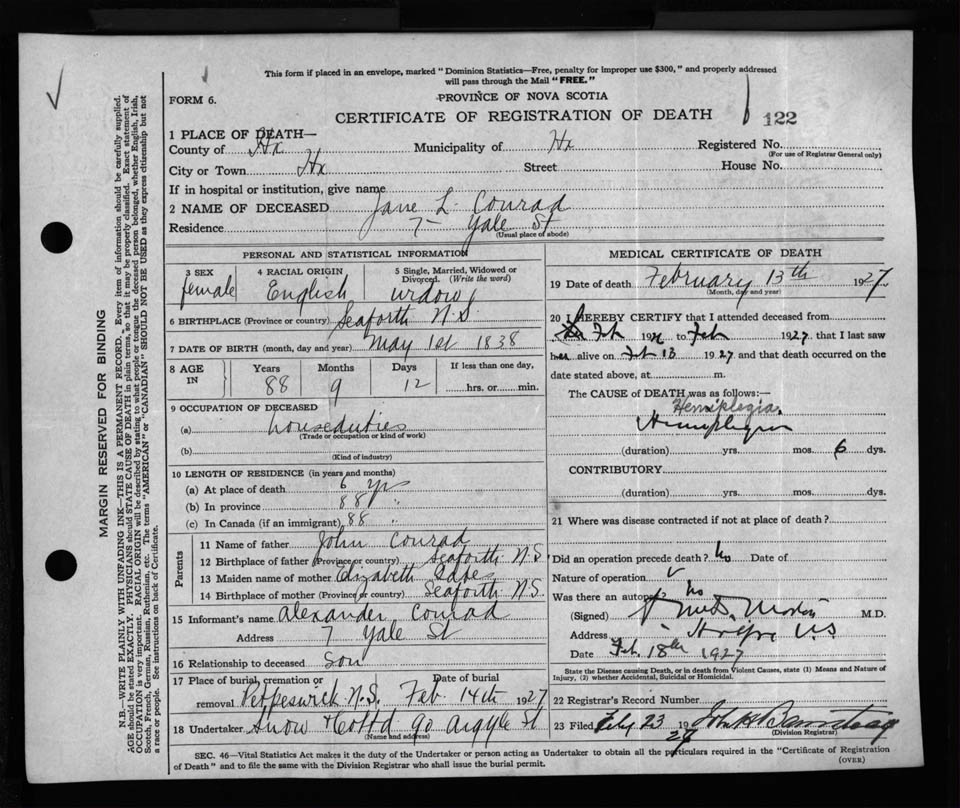 This form if placed in an envelope, marked "Dominion Statistics—Free, penalty for improper use $300," and properly addressed
will pass through the Mail "FREE."
FORM 6.
PROVINCE OF NOVA SCOTIA
CERTIFICATE OF REGISTRATION OF DEATH
122
1 PLACE OF DEATH—
County of Hx Municipality of Hx Registered No.
(For use of Registrar General only)
City or Town Hx Street House No.
If in hospital or institution, give name
2 NAME OF DECEASED Jane L. Conrad
Residence 7 — Yale St
(Usual place of abode)
PERSONAL AND STATISTICAL INFORMATION
3 SEX 4 RACIAL ORIGIN 5 Single, Married, Widowed or
Divorced. (Write the word)
female English widow
6 BIRTHPLACE (Province or country) Seaforth N.S.
7 DATE OF BIRTH (month, day and year) May 1st 1838
8 AGE IN Years Months Days If less than one day,
88 9 12 hrs. or min.
9 OCCUPATION OF DECEASED
(a) houseduties
(Trade or occupation or kind of work)
(b)
(Kind of industry)
10 LENGTH OF RESIDENCE (in years and months)
(a) At place of death 6 yrs
(b) In province 88 "
(c) In Canada (if an immigrant) 88 "
Parents
11 Name of father John Conrad
12 Birthplace of father (Province or country) Seaforth N.S.
13 Maiden name of mother Elizabeth
14 Birthplace of mother (Province or country) Seaforth N.S.
15 Informant's name Alexander Conrad
Address 7 Yale St
16 Relationship to deceased Son
17 Place of burial, cremation or Date of burial
removal Petpeswick N.S. Feb. 14th 1927
18 Undertaker Snow & Co Ltd 90 Argyle St
(Name and address)
MEDICAL CERTIFICATE OF DEATH
19 Date of death February 13th 1927
(Month, day and year)
20 I HEREBY CERTIFY that I attended deceased from
Feb 192 to Feb 1927, that I last saw
her alive on Feb 13 1927 and that death occurred on the
date stated above, at m.
The CAUSE OF DEATH was as follows:—
Hemiplegia
Hemiplegia
(duration) yrs. mos. 6 dys.
CONTRIBUTORY
(duration) yrs. mos. dys.
21 Where was disease contracted if not at place of death?
Did an operation precede death? No Date of
Nature of operation
Was there an autopsy? No
(Signed) M.D.
Address Halifax N S
Date Feb. 18th 1927
State the Disease causing Death, or in death from Violent Causes, state (1) Means and Nature of
Injury, (2) whether Accidental, Suicidal or Homicidal.
22 Registrar's Record Number
23 Filed Feby 23 19 27 John H Barnstead
(Division Registrar)
SEC. 46—Vital Statistics Act makes it the duty of the Undertaker or person acting as Undertaker to obtain all the particulars required in the "Certificate of Registration
of Death" and to file the same with the Division Registrar who shall issue the burial permit.
(OVER)
MARGIN RESERVED FOR BINDING
N.B.—WRITE PLAINLY WITH UNFADING INK—THIS IS A PERMANENT RECORD. Every item of information should be carefully supplied.
AGE should be stated EXACTLY. PHYSICIANS should STATE CAUSE OF DEATH in plain terms, so that it may be properly classified. Exact statement of
OCCUPATION is very important. RACIAL ORIGIN will be described by stating to what people or tongue the deceased person belonged, whether English, Irish,
Scotch, French, German, Russian, Ruthenian, etc. The terms "AMERICAN" or "CANADIAN" SHOULD NOT BE USED as they express citizenship but not
a race or people. See instructions on back of Certificate.